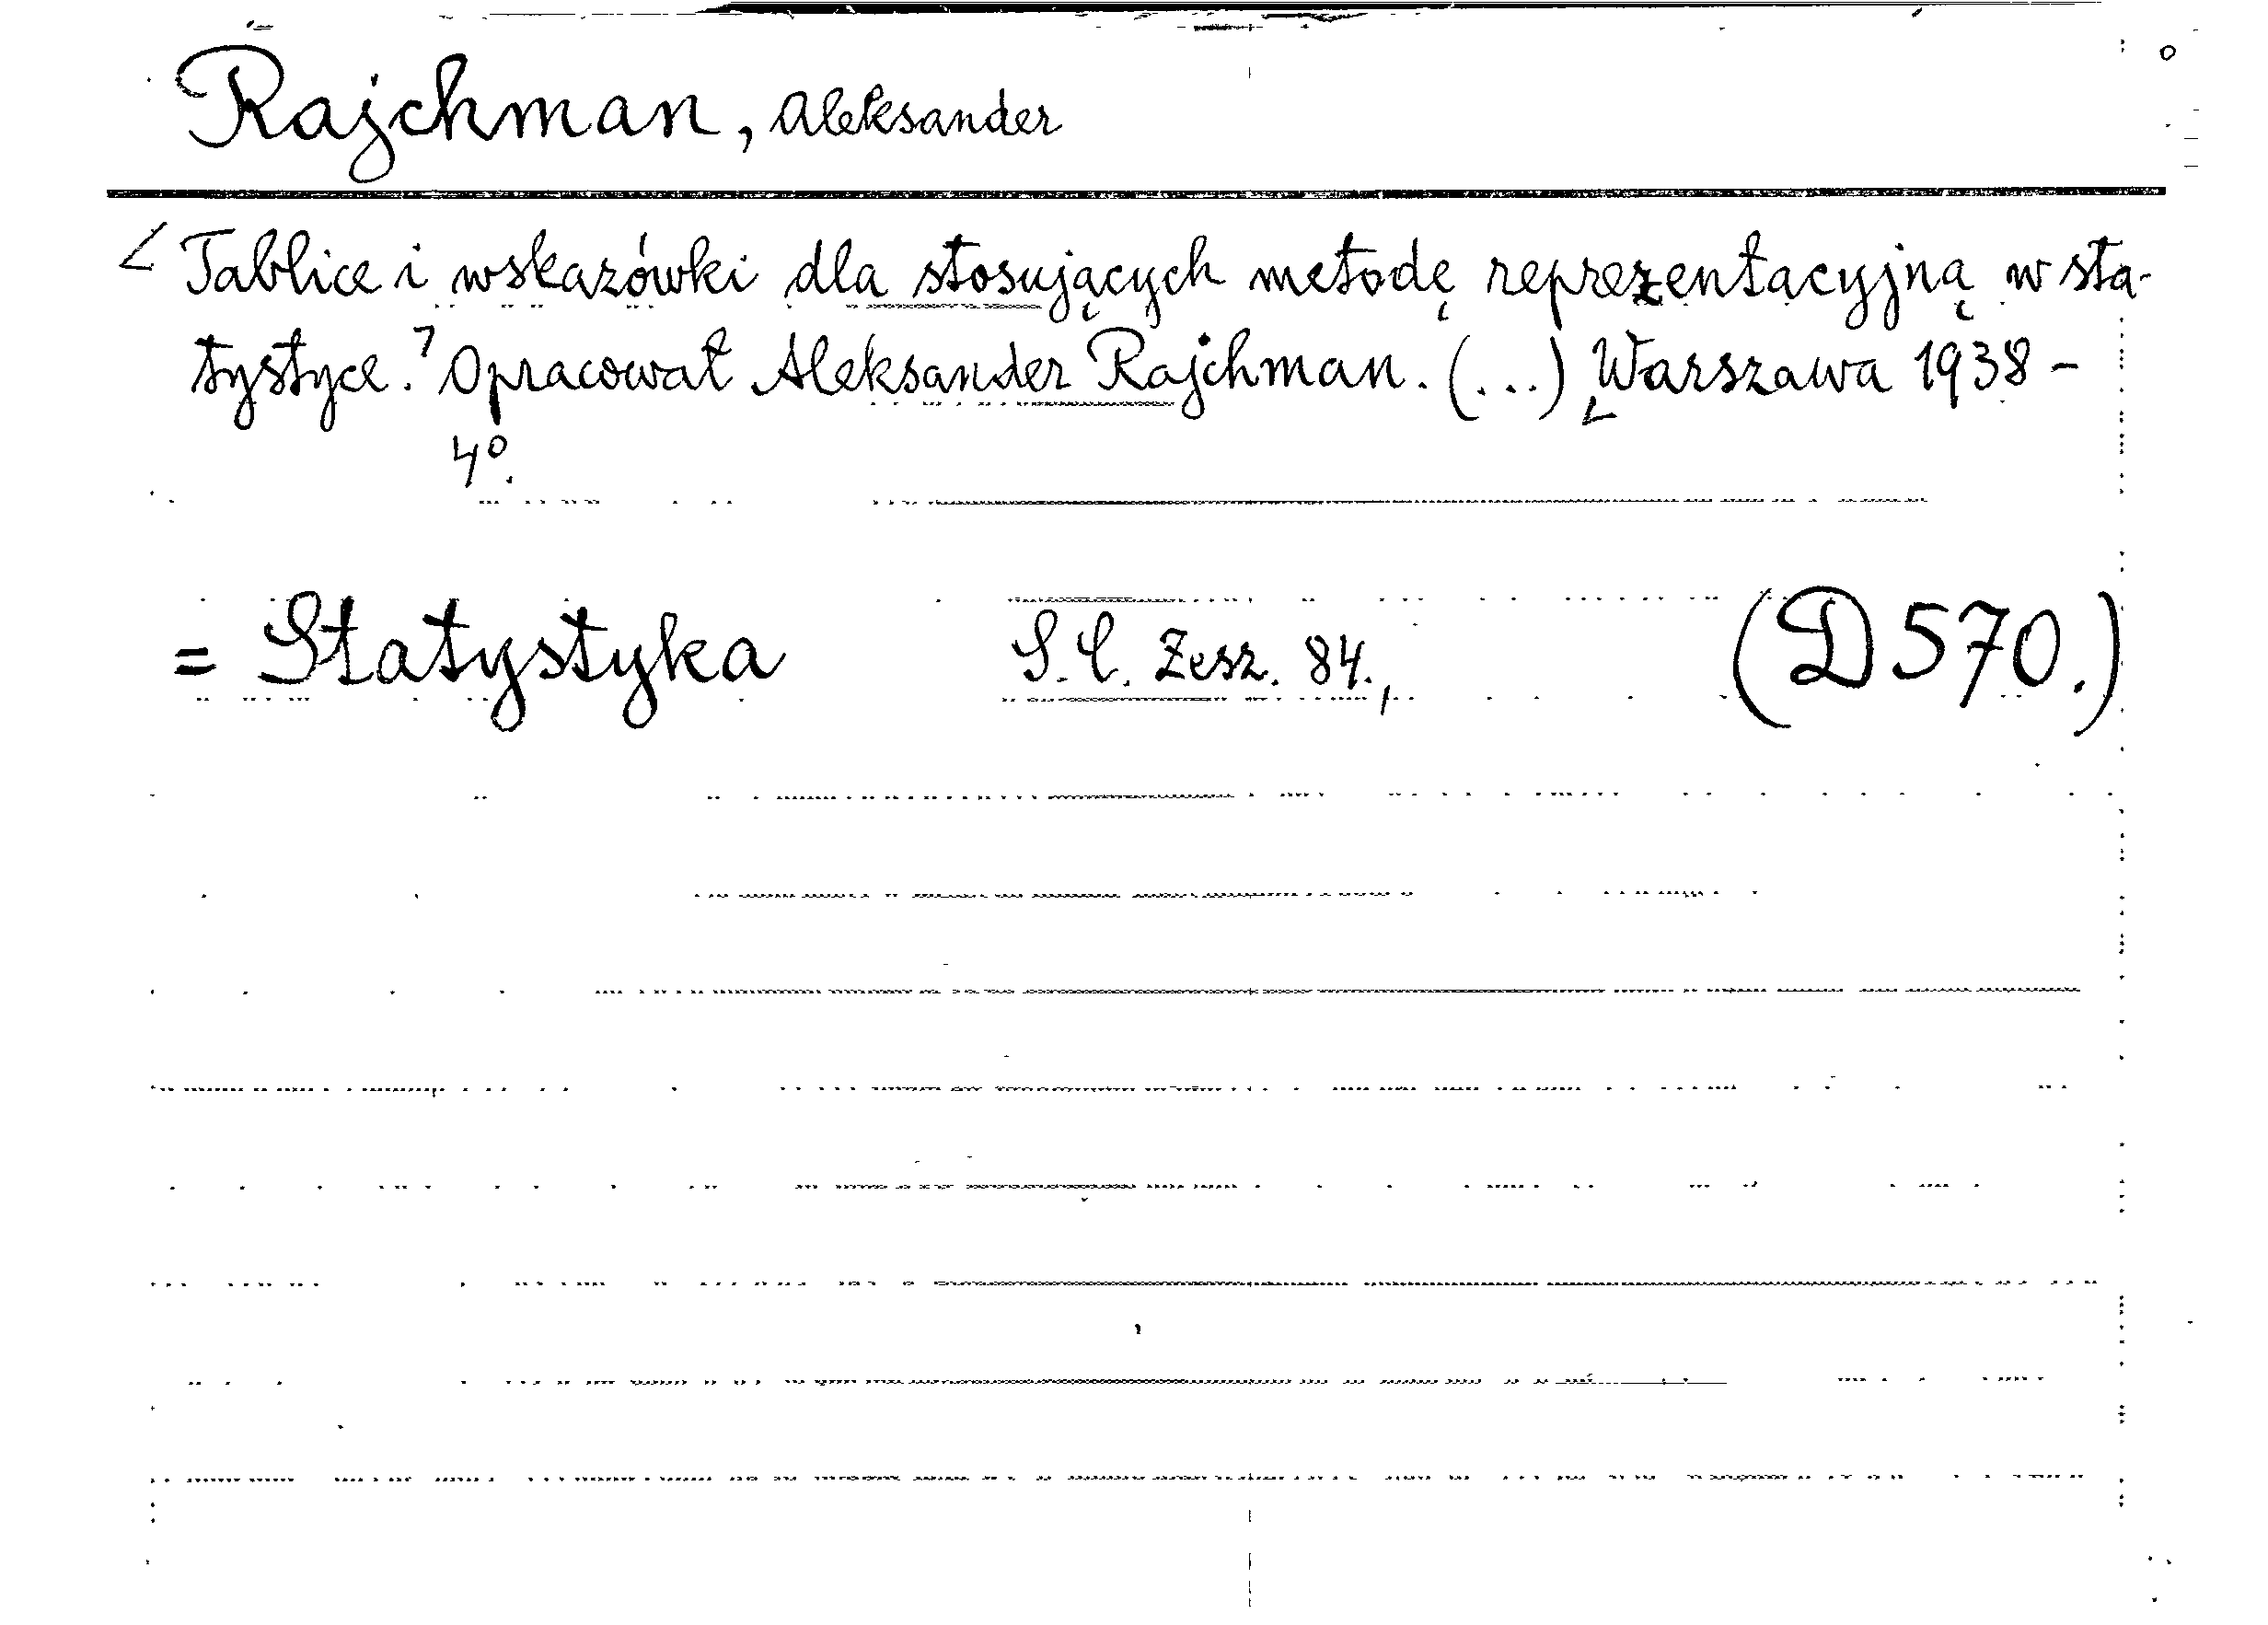 Rajchman, Aleksander
Tablice i wskazówki dla stosujących metodę reprezentacyjną w sta-
tystyce. Opracował Aleksander Rajchman. (...) Warszawa 1938 -
4°.
= Statystyka S. C. Zesz. 84., (D 570.)